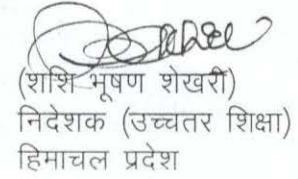 (शशि भूषण शेखरी)
निदेशक (उच्चतर शिक्षा)
हिमाचल प्रदेश